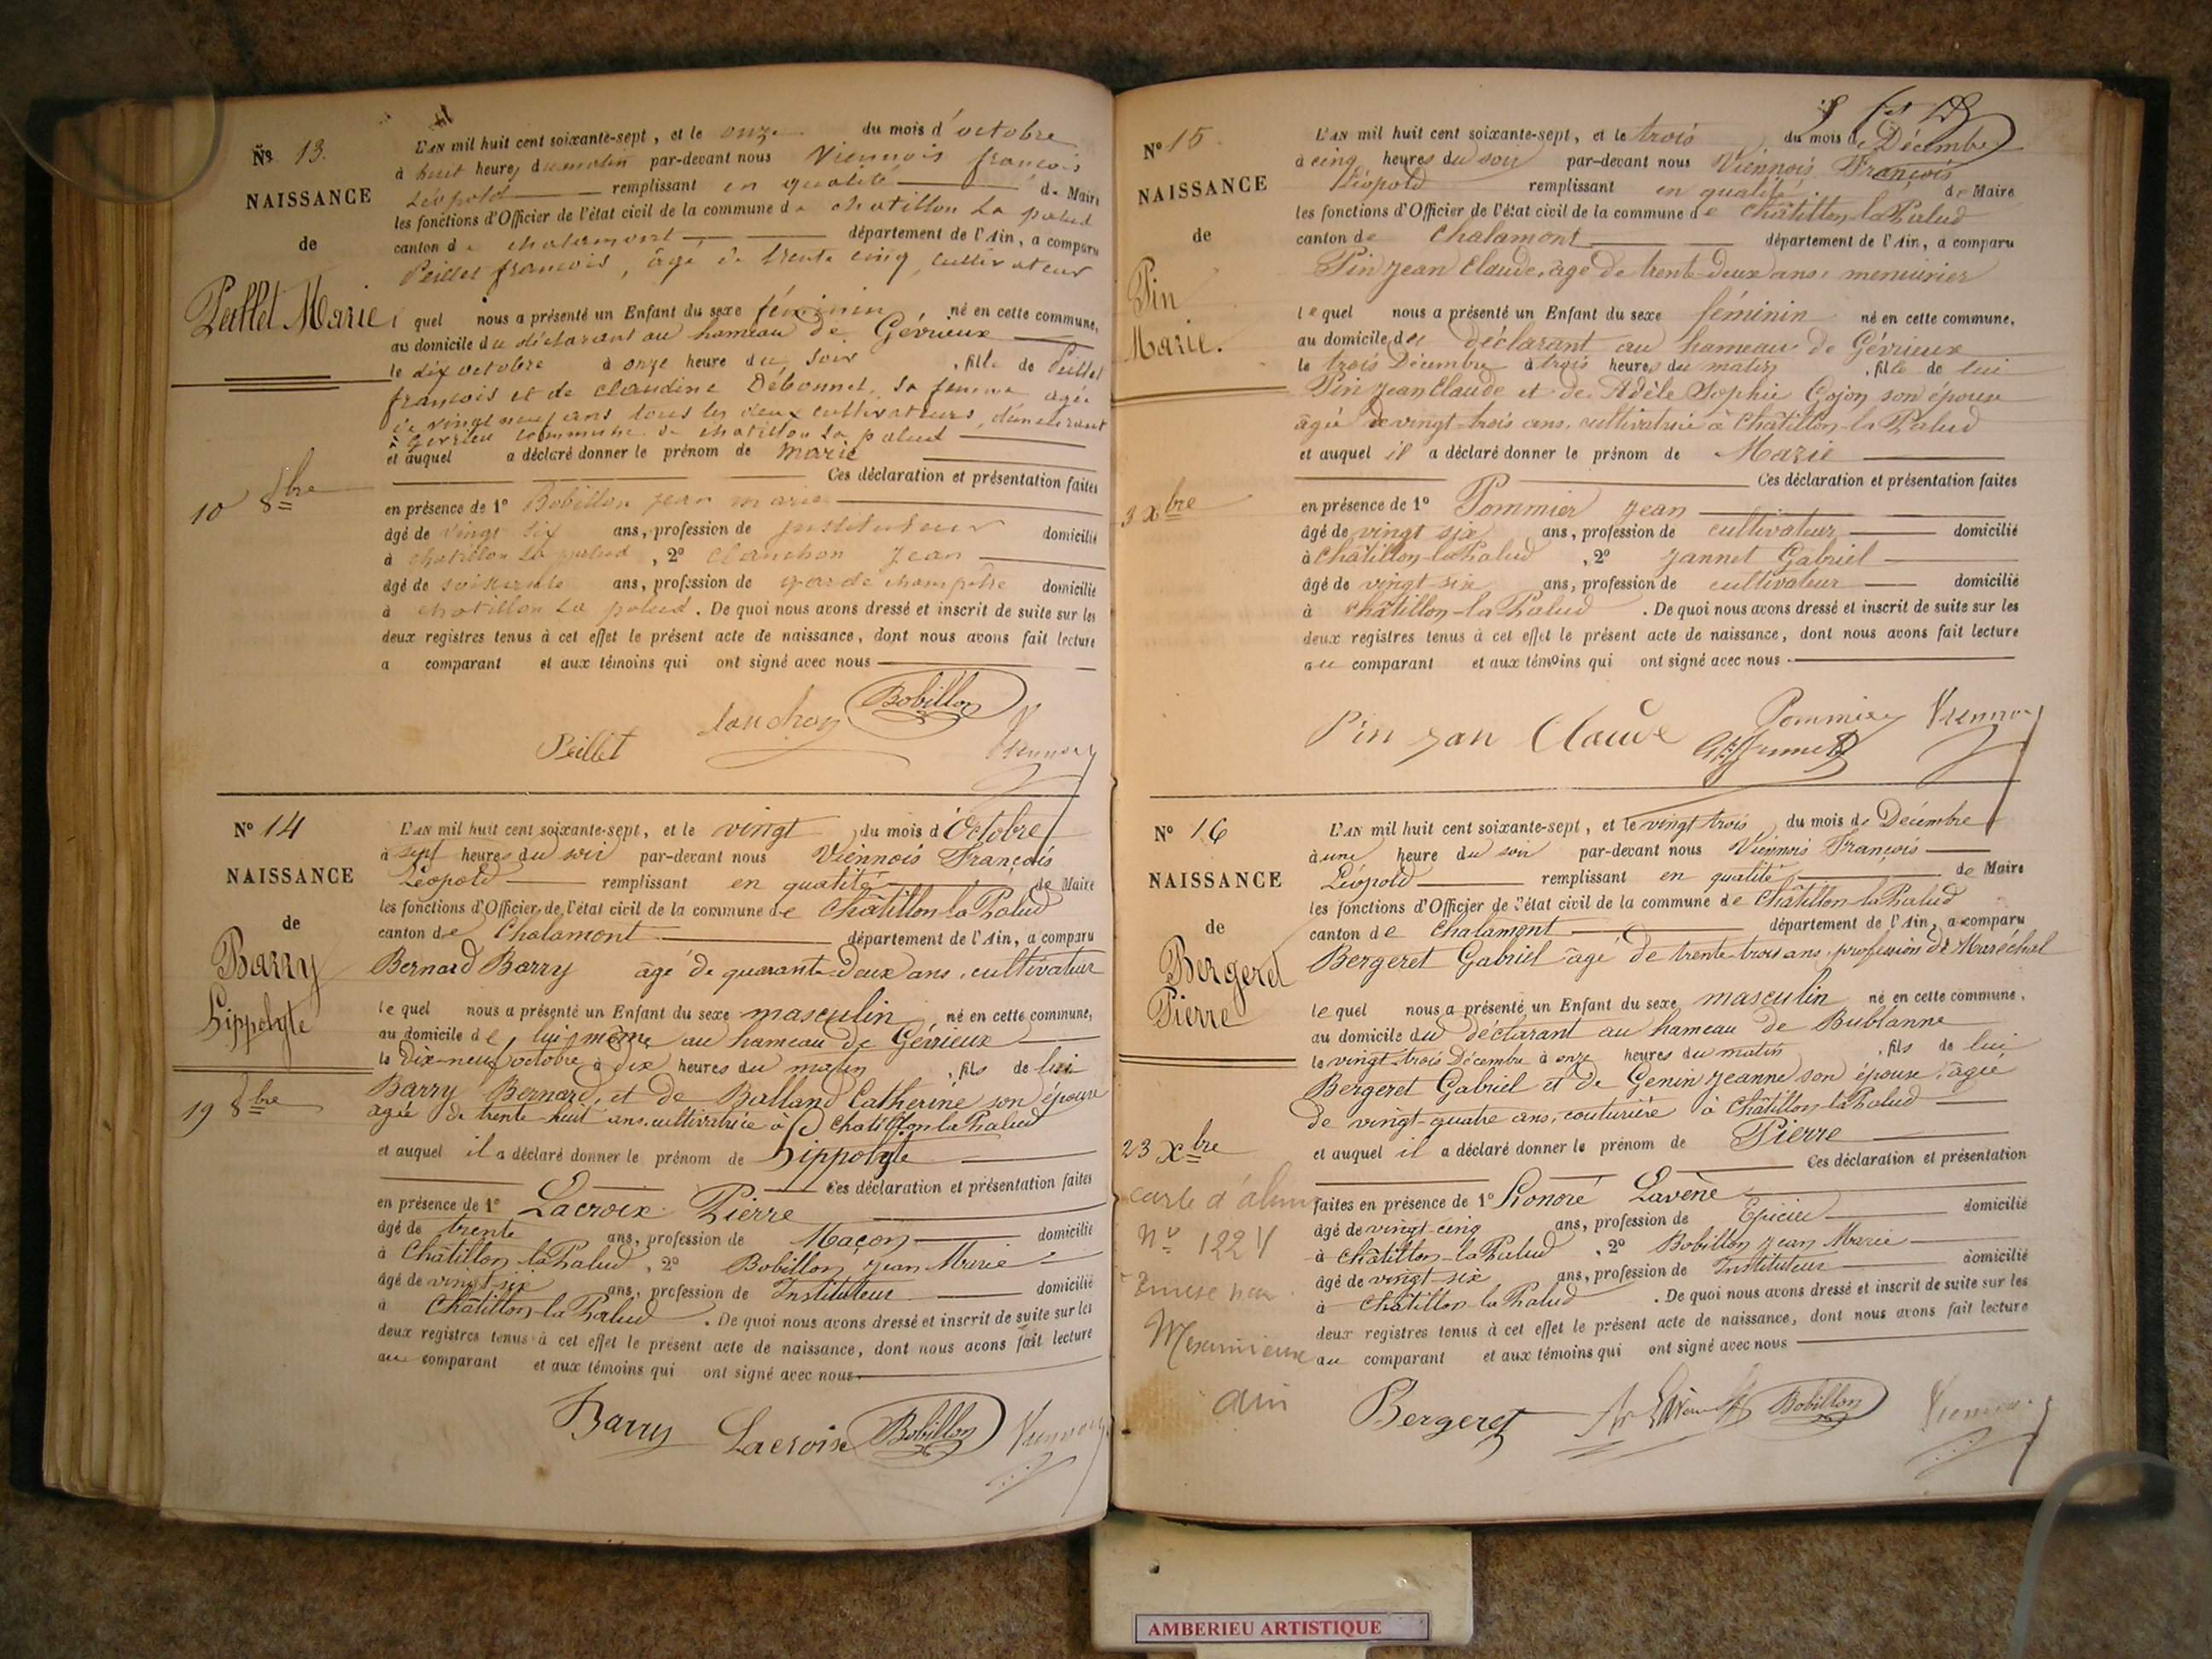 N° 13.
NAISSANCE
de
Peillet Marie
10 8bre
L'AN mil huit cent soixante-sept, et le onze du mois d'octobre
à huit heures du matin par-devant nous Viennois françois
Léopold remplissant en qualité de Maire
les fonctions d'Officier de l'état civil de la commune de chatillon la palud
canton de chalamont département de l'Ain, a comparu
Peillet francois, âgé de trente cinq, cultivateur
quel nous a présenté un Enfant du sexe féminin né en cette commune,
au domicile du déclarant au hameau de Gévrieux
le dix octobre à onze heure du soir, fille de Peillet
françois et de claudine Debonnet, sa femme agée
de vingt neuf ans tous les deux cultivateurs, demeurant
à Gevrieu commune de chatillon la palud
et auquel a déclaré donner le prénom de Marie
Ces déclaration et présentation faites
en présence de 1° Bobillon jean marie
âgé de vingt six ans, profession de instituteur domicilié
à chatillon la palud, 2° Clanchon Jean
âgé de soixante ans, profession de garde champêtre domicilié
à chatillon la palud. De quoi nous avons dressé et inscrit de suite sur les
deux registres tenus à cet effet le présent acte de naissance, dont nous avons fait lecture
a comparant et aux témoins qui ont signé avec nous
Bobillon
Peillet
Viennois
N° 14
NAISSANCE
de
Barry
Hippolyte
19 8bre
L'AN mil huit cent soixante-sept, et le vingt du mois d'Octobre
à sept heures du soir par-devant nous Viennois François
Léopold remplissant en qualité de Maire
les fonctions d'Officier de l'état civil de la commune de Châtillon-la-Palud
canton de Chalamont département de l'Ain, a comparu
Bernard Barry âgé de quarante-deux ans, cultivateur
lequel nous a présenté un Enfant du sexe masculin né en cette commune,
au domicile de lui-même au hameau de Gévrieux
le Dix-neuf octobre à dix heures du matin, fils de lui
Barry Bernard, et de Balland Catherine son épouse
agée de trente-huit ans, cultivatrice à Châtillon-la-Palud
et auquel il a déclaré donner le prénom de Hippolyte
Ces déclaration et présentation faites
en présence de 1° Lacroix Pierre
âgé de trente ans, profession de Maçon domicilié
à Châtillon-la-Palud, 2° Bobillon Jean Marie
âgé de vingt-six ans, profession de Instituteur domicilié
à Châtillon-la-Palud. De quoi nous avons dressé et inscrit de suite sur les
deux registres tenus à cet effet le présent acte de naissance, dont nous avons fait lecture
au comparant et aux témoins qui ont signé avec nous
Barry Lacroix Bobillon Viennois
N° 15
NAISSANCE
de
Pin
Marie.
3 Xbre
L'AN mil huit cent soixante-sept, et le trois du mois de Décembre
à cinq heures du soir par-devant nous Viennois François
Léopold remplissant en qualité de Maire
les fonctions d'Officier de l'état civil de la commune de Châtillon-la-Palud
canton de Chalamont département de l'Ain, a comparu
Pin Jean Claude, âgé de trente-deux ans, menuisier
lequel nous a présenté un Enfant du sexe féminin né en cette commune,
au domicile du déclarant au hameau de Gévrieux
le trois Décembre à trois heures du matin, fille de lui
Pin Jean Claude et de Adèle Sophie Gojon son épouse
agée de vingt-trois ans, cultivatrice à Châtillon-la-Palud
et auquel il a déclaré donner le prénom de Marie
Ces déclaration et présentation faites
en présence de 1° Pommier Jean
âgé de vingt six ans, profession de cultivateur domicilié
à Châtillon-la-Palud, 2° Jannet Gabriel
âgé de vingt-six ans, profession de cultivateur domicilié
à Châtillon-la-Palud. De quoi nous avons dressé et inscrit de suite sur les
deux registres tenus à cet effet le présent acte de naissance, dont nous avons fait lecture
au comparant et aux témoins qui ont signé avec nous
Pin jan Claude Pommier Viennois
N° 16
NAISSANCE
de
Bergeret
Pierre
23 Xbre
carte d'alim
N° 1224
Meximieux
Ain
L'AN mil huit cent soixante-sept, et le vingt trois du mois de Décembre
à une heure du soir par-devant nous Viennois François
Léopold remplissant en qualité de Maire
les fonctions d'Officier de l'état civil de la commune de Châtillon-la-Palud
canton de Chalamont département de l'Ain, a comparu
Bergeret Gabriel âgé de trente-trois ans, profession de Maréchal
lequel nous a présenté un Enfant du sexe masculin né en cette commune,
au domicile du déclarant au hameau de Bublanne
le vingt-trois Décembre à onze heures du matin, fils de lui
Bergeret Gabriel et de Genin Jeanne son épouse, agée
de vingt-quatre ans, couturière à Châtillon-la-Palud
et auquel il a déclaré donner le prénom de Pierre
Ces déclaration et présentation
faites en présence de 1° Honoré Lavène
âgé de vingt-cinq ans, profession de Epicier domicilié
à Châtillon-la-Palud, 2° Bobillon Jean Marie
âgé de vingt-six ans, profession de Instituteur domicilié
à Châtillon-la-Palud. De quoi nous avons dressé et inscrit de suite sur les
deux registres tenus à cet effet le présent acte de naissance, dont nous avons fait lecture
au comparant et aux témoins qui ont signé avec nous
Bergeret Bobillon Viennois
AMBERIEU ARTISTIQUE